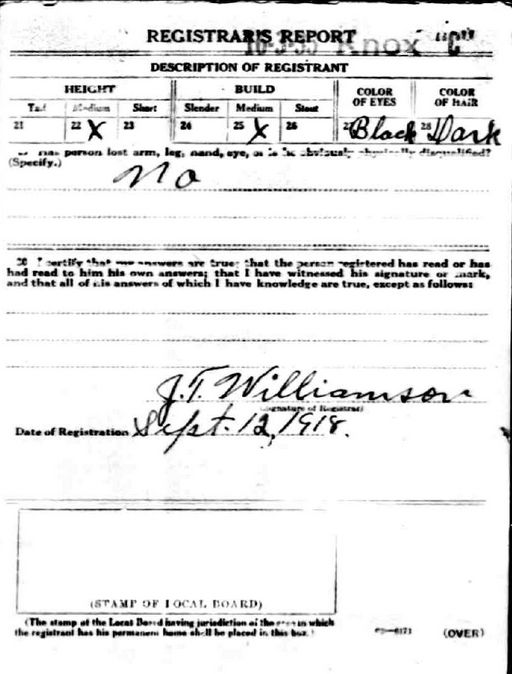 REGISTRAR'S REPORT
10-3-35 Knox "C"
DESCRIPTION OF REGISTRANT
HEIGHT BUILD COLOR OF EYES COLOR OF HAIR
Tall Medium Short Slender Medium Stout
21 22 X 23 24 25 X 26 27 Black 28 Dark
Has person lost arm, leg, hand, eye, or is he obviously physically disqualified?
(Specify.)
No
30 I certify that my answers are true; that the person registered has read or has
had read to him his own answers; that I have witnessed his signature or mark,
and that all of his answers of which I have knowledge are true, except as follows:
J.T. Williamson
(Signature of Registrar)
Date of Registration Sept. 12, 1918.
(STAMP OF LOCAL BOARD)
(The stamp of the Local Board having jurisdiction of the area in which
the registrant has his permanent home shall be placed in this box.)
(OVER)